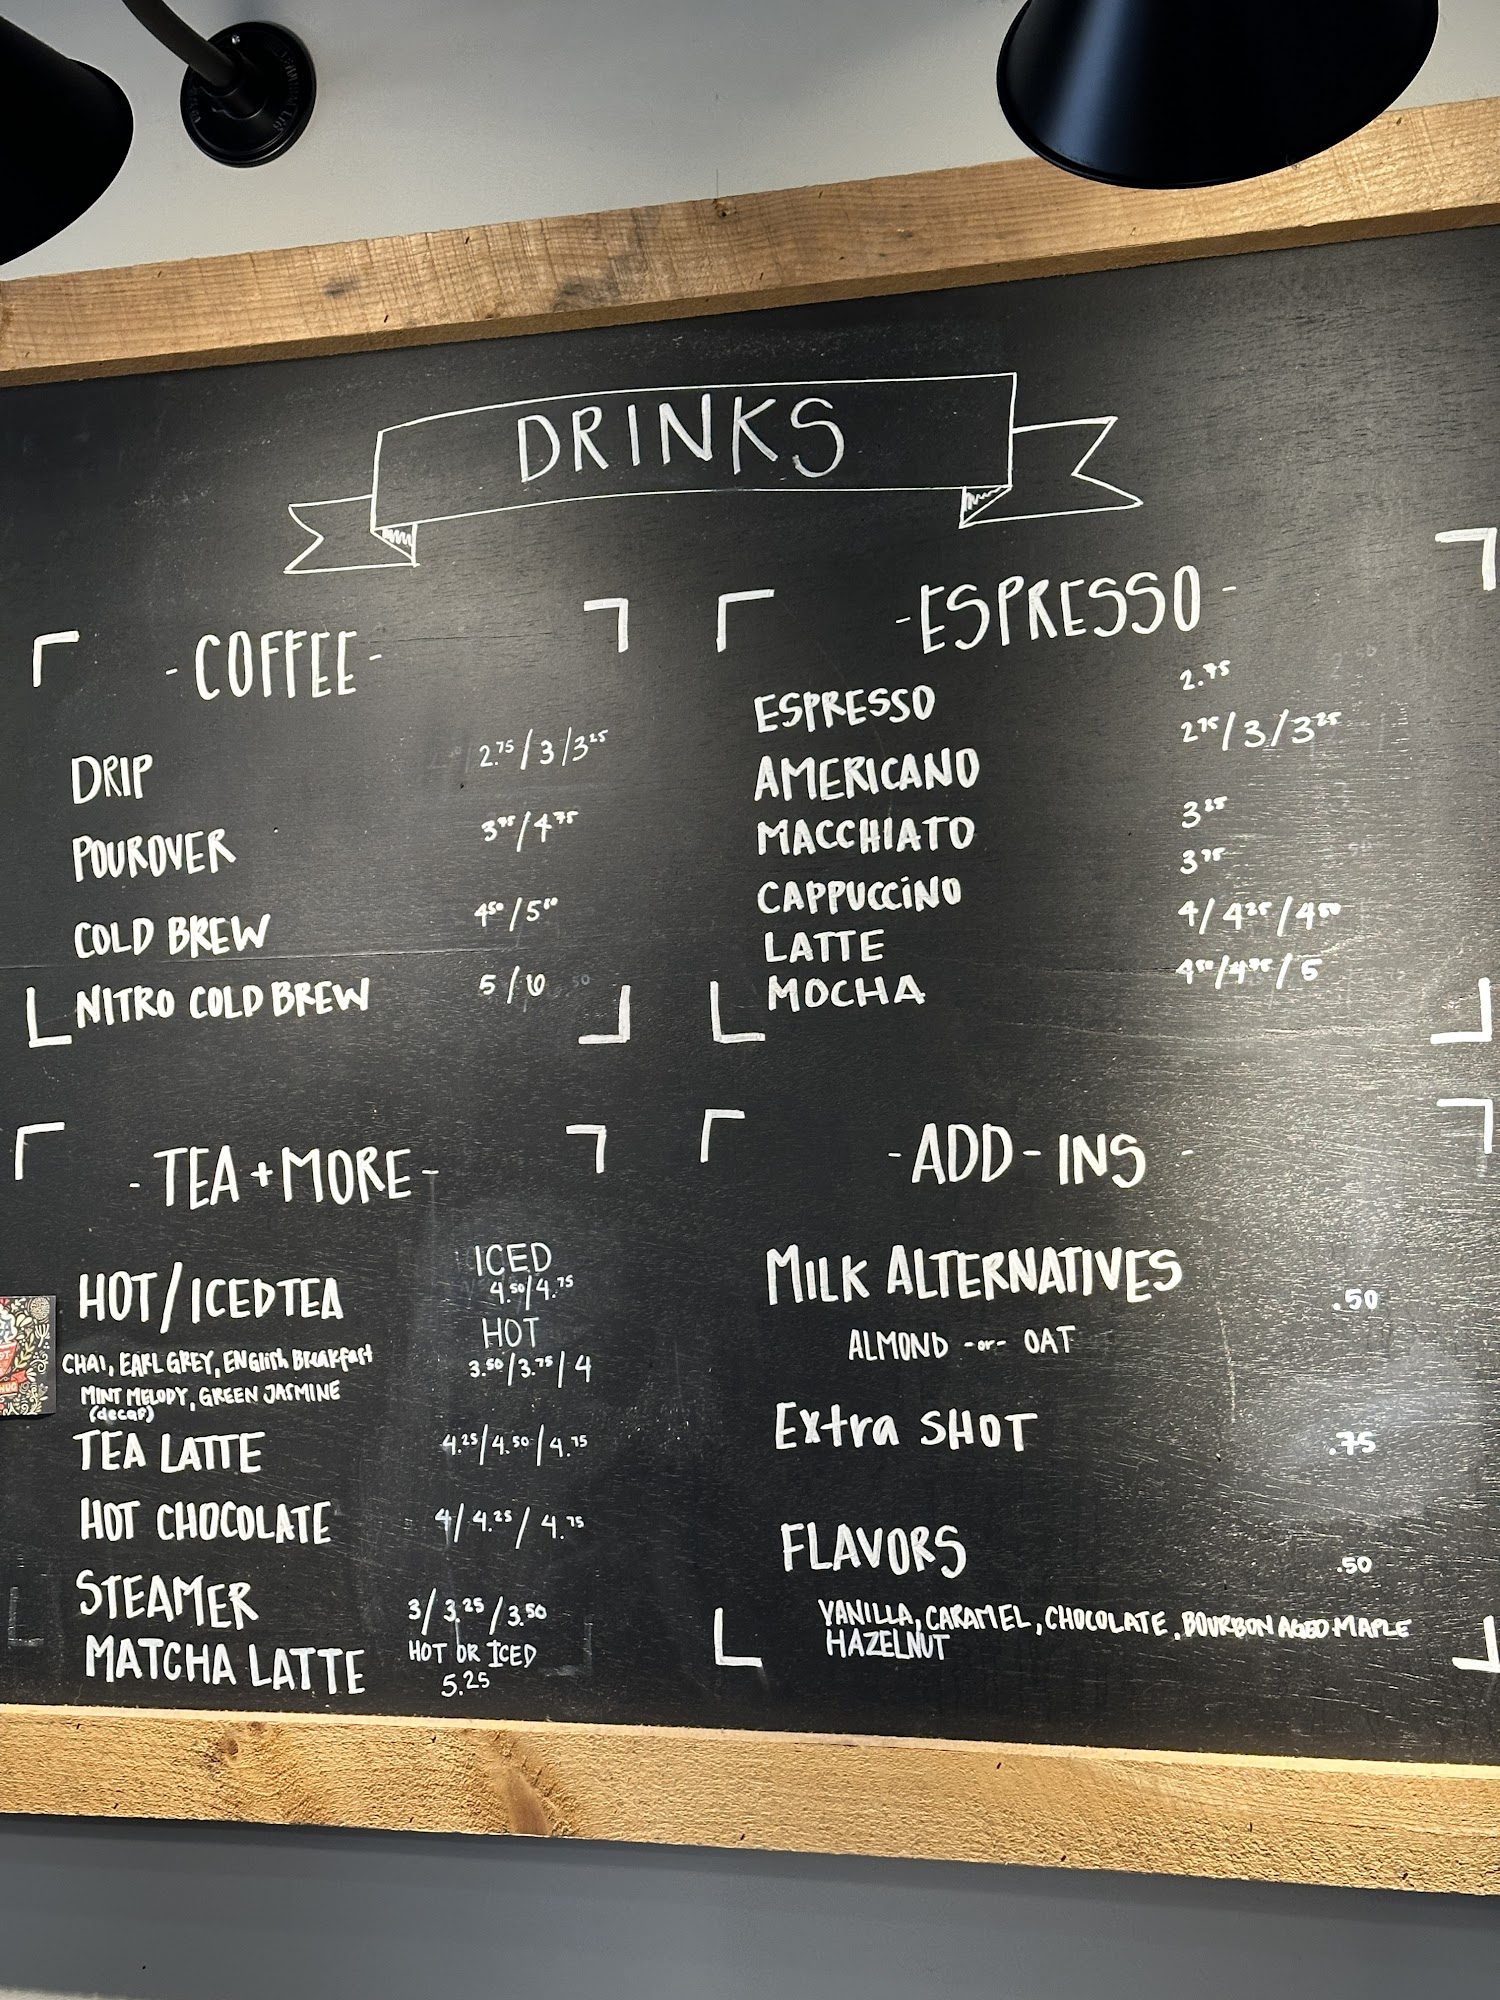 DRINKS
- COFFEE -
DRIP 2.75 / 3 / 3.25
POUROVER 3.75 / 4.75
COLD BREW 4.50 / 5.00
NITRO COLD BREW 5 / 6
- ESPRESSO -
ESPRESSO 2.75
AMERICANO 2.75 / 3 / 3.25
MACCHIATO 3.25
CAPPUCCINO 3.75
LATTE 4 / 4.25 / 4.50
MOCHA 4.50 / 4.75 / 5
- TEA + MORE -
HOT / ICED TEA
ICED
4.50 / 4.75
HOT
3.50 / 3.75 / 4
CHAI, EARL GREY, ENGlish BreaKfast
MINT MELODY, GREEN JASMINE
(decaf)
TEA LATTE 4.25 / 4.50 / 4.75
HOT CHOCOLATE 4 / 4.25 / 4.75
STEAMER 3 / 3.25 / 3.50
MATCHA LATTE HOT OR ICED
5.25
- ADD - INS -
MILK ALTERNATIVES .50
ALMOND -or- OAT
Extra SHOT .75
FLAVORS .50
VANILLA, CARAMEL, CHOCOLATE, BOURBON AGED MAPLE
HAZELNUT